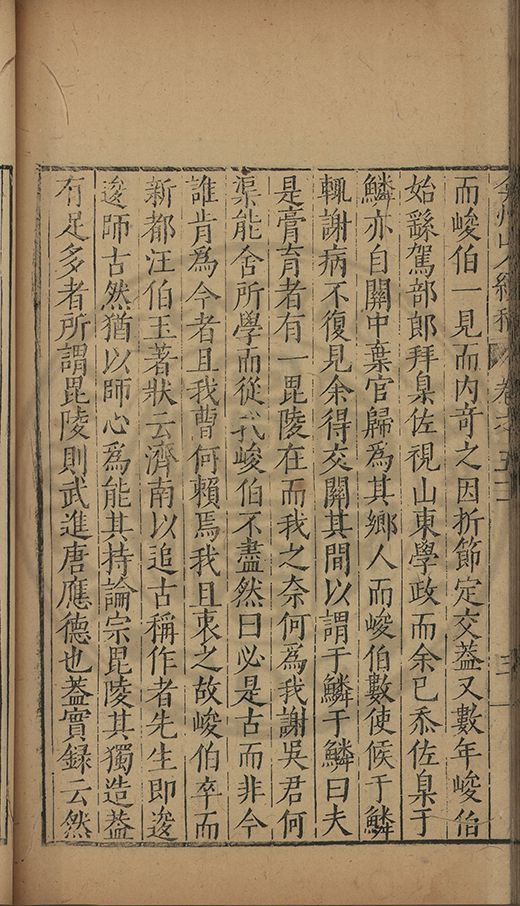 而峻伯一見而内奇之因折節定交葢又數年峻伯
始繇駕部郎拜臬佐視山東學政而余已忝佐臬于
鱗亦自關中棄官歸爲其鄉人而峻伯數使候于鱗
輒謝病不復見余得交關其間以謂于鱗于鱗曰夫
是膏育者有一毘陵在而我之奈何爲我謝吳君何
渠能舍所學而從我峻伯不盡然曰必是古而非今
誰肯爲今者且我曹何賴焉我且衷之故峻伯卒而
新都汪伯玉著狀云濟南以追古稱作者先生即逡
逡師古然猶以師心爲能其持論宗毘陵其獨造葢
有足多者所謂毘陵則武進唐應德也葢實録云然